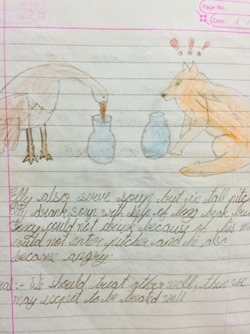 Page No.
Date
!!!
also serve soup but in tall
drank soup with help of long beak but
could not drink because of his
could not enter pitcher and he also
became angry.
:- We should treat other well, then we
may expect to be treated well